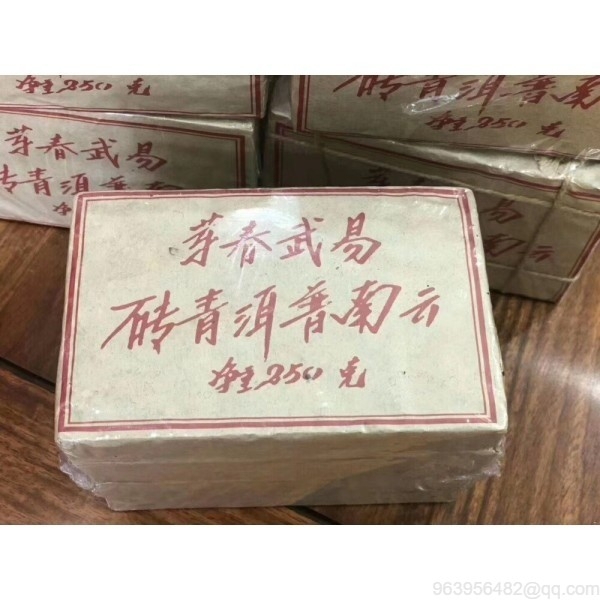 净重250克
易武春芽
南普洱青砖
净重250克
易武春芽
云南普洱青砖
净重250克
云南
963956482@qq.com